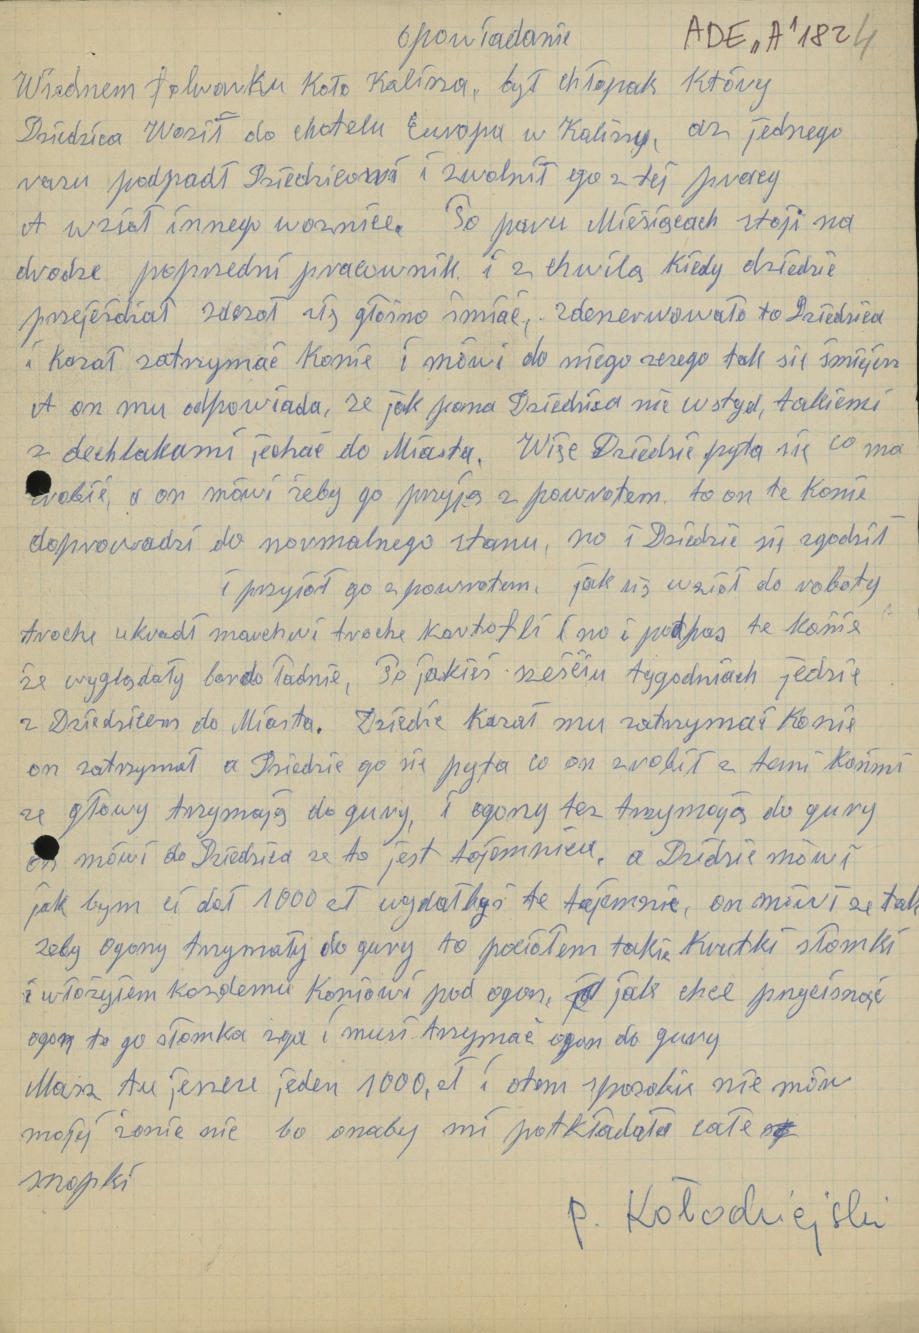 opowiadanie ADE „A" 1824
W iednem folwarku Koło Kalisza, był chłopak Który
Dziedzica Woził do chotelu Europa w Kaliszy, az jednego
razu podpadł Dziedzicowi i zwolnił ego z tej pracy
A wzioł innego woznice. Po paru Miesiącach stoji na
drodze poprzedni pracownik i z chwilą kiedy dziedzic
przejeżdżał zdczoł się głośno śmiać, zdenerwowało to Dziedzica
i Kazał zatrzymać Konie i mówi do niego czego tak się śmiejesz
A on mu odpowiada, ze jak pana Dziedzica nie wstyd, takiemi
z dechlakami jechać do Miasta. Więc Dziedzic pyta się co ma
zrobić, a on mówi żeby go przyją z powrotem. to on te Konie
doprowadzi do normalnego stanu, no i Dziedzic się zgodził
i przyjoł go z powrotem. jak się wzioł do roboty
troche ukradł marchwi troche kartofli i no i podpas te konie
że wyglądały bardo ładnie, Po jakieś sześciu tygodniach jedzie
z Dziedzicem do Miasta. Dziedzic Kazał mu zatrzymać Konie
on zatrzymał a Dziedzic go się pyta co on zrobił z temi Końmi
ze głowy trzymają do gury, i ogony tez trzymają do gury
on mówi do Dziedzica ze to jest tajemnica. a Dziedzic mówi
jak bym ci dał 1000 zł wydałbyś te tajemnie, on mówi ze tak
zeby ogony trzymały do gury to pociołem takie Krutki słomki
i włożyłem kozdemu Koniowi pod ogon, jak chce przycisnąć
ogon to go słomka zga i musi trzymać ogon do gury
Masz tu jeszcze jeden 1000, zł i otem sposobie nie mów
mojej żonie nic bo onaby mi potkładała całe
snopki
P. Kołodziejski